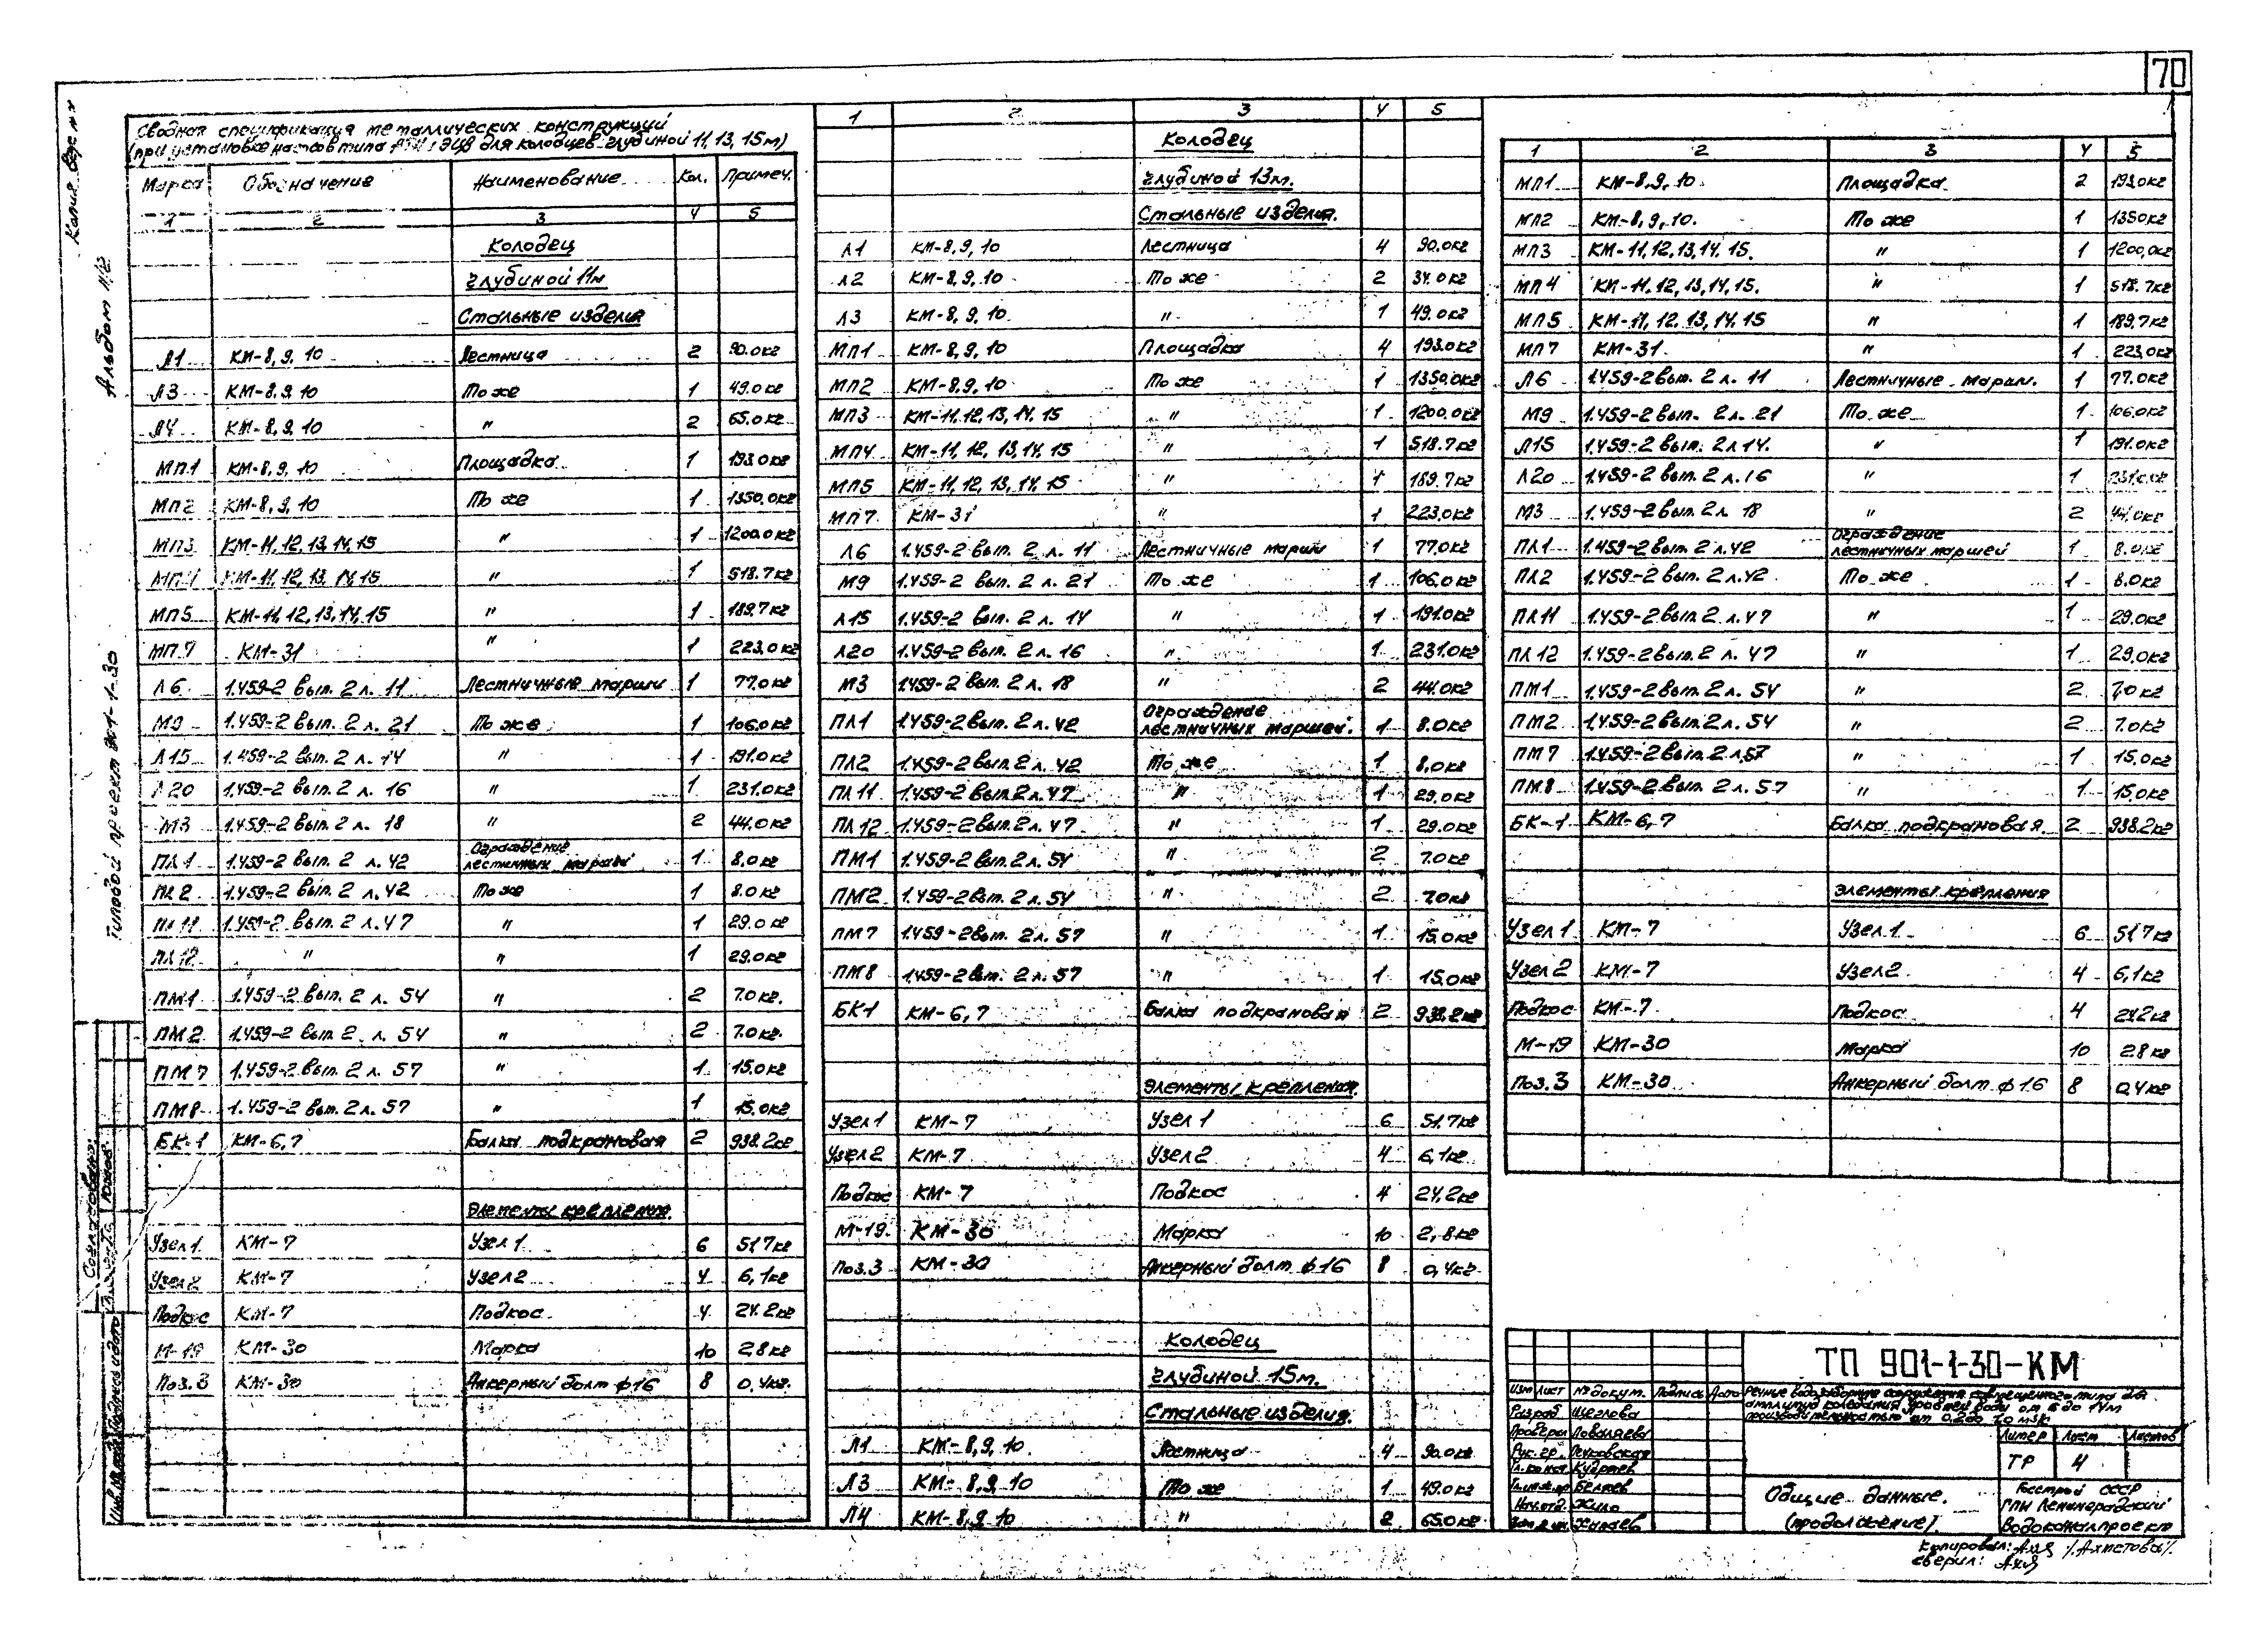 70
Копия верна
Альбом
Типовой проект 901-1-30
Согласовано
Сводная спецификация металлических конструкций
(при установке насосов типа ЭЦВ для колодцев глубиной 11, 13, 15м)
Марка Обозначение Наименование Кол. Примеч.
1 2 3 4 5
Колодец
глубиной 11м
Стальные изделия
Л1 КМ-8,9,10 Лестница 2 90.0кг
Л3 КМ-8,9,10 То же 1 49.0кг
Л4 КМ-8,9,10 " 2 65.0кг
МП1 КМ-8,9,10 Площадка 1 193.0кг
МП2 КМ-8,9,10 То же 1 1350.0кг
МП3 КМ-11,12,13,14,15 " 1 1200.0кг
МП4 КМ-11,12,13,14,15 " 1 518.7кг
МП5 КМ-11,12,13,14,15 " 1 189.7кг
МП7 КМ-31 " 1 223.0кг
Л6 1.459-2 вып. 2 л. 11 Лестничные марши 1 77.0кг
М9 1.459-2 вып. 2 л. 21 То же 1 106.0кг
Л15 1.459-2 вып. 2 л. 14 " 1 191.0кг
Л20 1.459-2 вып. 2 л. 16 " 1 231.0кг
М3 1.459-2 вып. 2 л. 18 " 2 44.0кг
ПЛ1 1.459-2 вып. 2 л. 42 Ограждение лестничных маршей 1 8.0кг
ПЛ2 1.459-2 вып. 2 л. 42 То же 1 8.0кг
ПЛ11 1.459-2 вып. 2 л. 47 " 1 29.0кг
ПЛ12 " " 1 29.0кг
ПМ1 1.459-2 вып. 2 л. 54 " 2 7.0кг.
ПМ2 1.459-2 вып. 2 л. 54 " 2 7.0кг.
ПМ7 1.459-2 вып. 2 л. 57 " 1 15.0кг
ПМ8 1.459-2 вып. 2 л. 57 " 1 15.0кг
БК-1 КМ-6,7 Балка подкрановая 2 938.2кг
Элементы крепления
Узел1 КМ-7 Узел 1 6 51.7кг
Узел2 КМ-7 Узел2 4 6,1кг
Подкос КМ-7 Подкос 4 24.2кг
М-19 КМ-30 Марка 10 2.8кг
Поз.3 КМ-30 Анкерный болт ф16 8 0,4кг.
1 2 3 4 5
Колодец
глубиной 13м.
Стальные изделия.
Л1 КМ-8,9,10 Лестница 4 90.0кг
Л2 КМ-8,9,10 То же 2 34.0кг
Л3 КМ-8,9,10 " 1 49.0кг
МП1 КМ-8,9,10 Площадка 4 193.0кг
МП2 КМ-8,9,10 То же 1 1350.0кг
МП3 КМ-11,12,13,14,15 " 1 1200.0кг
МП4 КМ-11,12,13,14,15 " 1 518.7кг
МП5 КМ-11,12,13,14,15 " 1 189.7кг
МП7 КМ-31 " 1 223.0кг
Л6 1.459-2 вып. 2 л. 11 Лестничные марши 1 77.0кг
М9 1.459-2 вып. 2 л. 21 То же 1 106.0кг
Л15 1.459-2 вып. 2 л. 14 " 1 191.0кг
Л20 1.459-2 вып. 2 л. 16 " 1 231.0кг
М3 1.459-2 вып. 2 л. 18 " 2 44.0кг
ПЛ1 1.459-2 вып. 2 л. 42 Ограждение лестничных маршей. 1 8.0кг
ПЛ2 1.459-2 вып. 2 л. 42 То же 1 8,0кг
ПЛ11 1.459-2 вып. 2 л. 47 " 1 29.0кг
ПЛ12 1.459-2 вып. 2 л. 47 " 1 29.0кг
ПМ1 1.459-2 вып. 2 л. 54 " 2 7.0кг
ПМ2 1.459-2 вып. 2 л. 54 " 2 7.0кг
ПМ7 1.459-2 вып. 2 л. 57 " 1 15.0кг
ПМ8 1.459-2 вып. 2 л. 57 " 1 15.0кг
БК1 КМ-6,7 Балка подкрановая 2 938.2кг
Элементы крепления.
Узел1 КМ-7 Узел 1 6 51.7кг
Узел2 КМ-7 Узел2 4 6,1кг
Подкос КМ-7 Подкос 4 24.2кг
М-19 КМ-30 Марка 10 2,8кг
Поз.3 КМ-30 Анкерный болт ф16 8 0,4кг
Колодец
глубиной 15м.
Стальные изделия.
Л1 КМ-8,9,10 Лестница 4 90.0кг
Л3 КМ-8,9,10 То же 1 49.0кг
Л4 КМ-8,9,10 " 2 65.0кг
1 2 3 4 5
МП1 КМ-8,9,10 Площадка 2 193.0кг
МП2 КМ-8,9,10. То же 1 1350кг
МП3 КМ-11,12,13,14,15. " 1 1200,0кг
МП4 КМ-11,12,13,14,15. " 1 518.7кг
МП5 КМ-11,12,13,14,15 " 1 189,7кг
МП7 КМ-31. " 1 223,0кг
Л6 1.459-2 вып. 2 л. 11 Лестничные марши. 1 77.0кг
М9 1.459-2 вып. 2 л. 21 То же 1 106.0кг
Л15 1.459-2 вып. 2 л 14. " 1 191.0кг
Л20 1.459-2 вып. 2 л. 16 " 1 231.0кг
М3 1.459-2 вып. 2 л 18 " 2 44.0кг
ПЛ1 1.459-2 вып. 2 л. 42 Ограждение лестничных маршей 1 8.0кг
ПЛ2 1.459-2 вып. 2 л. 42 То же 1 8.0кг
ПЛ11 1.459-2 вып. 2 л. 47 " 1 29.0кг
ПЛ12 1.459-2 вып. 2 л. 47 " 1 29,0кг
ПМ1 1.459-2 вып. 2 л. 54 " 2 7,0кг
ПМ2 1.459-2 вып. 2 л. 54 " 2 7.0кг
ПМ7 1.459-2 вып. 2 л. 57 " 1 15.0кг
ПМ8 1.459-2 вып. 2 л. 57 " 1 15,0кг
БК-1 КМ-6,7 Балка подкрановая 2 938.2кг
Элементы крепления
Узел 1 КМ-7 Узел.1 6 51.7кг
Узел 2 КМ-7 Узел2. 4 6,1кг
Подкос КМ-7 Подкос 4 24.2кг
М-19 КМ-30 Марка 10 2.8кг
Поз.3 КМ-30 Анкерный болт ф16 8 0,4кг
ТП 901-1-30-КМ
Изм Лист № докум. Подпись Дата
Речные водозаборные сооружения совмещенного типа для
амплитуд колебания уровней воды от 6 до 14м
производительностью от 0.2 до 1.0 м3/с
Разраб Щеглова
Проверил
Рук. гр.
Гл. конст.
Гл. инж. пр Беляев
Нач. отд.
Литер Лист Листов
ТР 4
Общие данные.
(продолжение).
Госстрой СССР
ГПИ Ленинградский
Водоканалпроект
Копировал: /Ахметова/
Сверил: